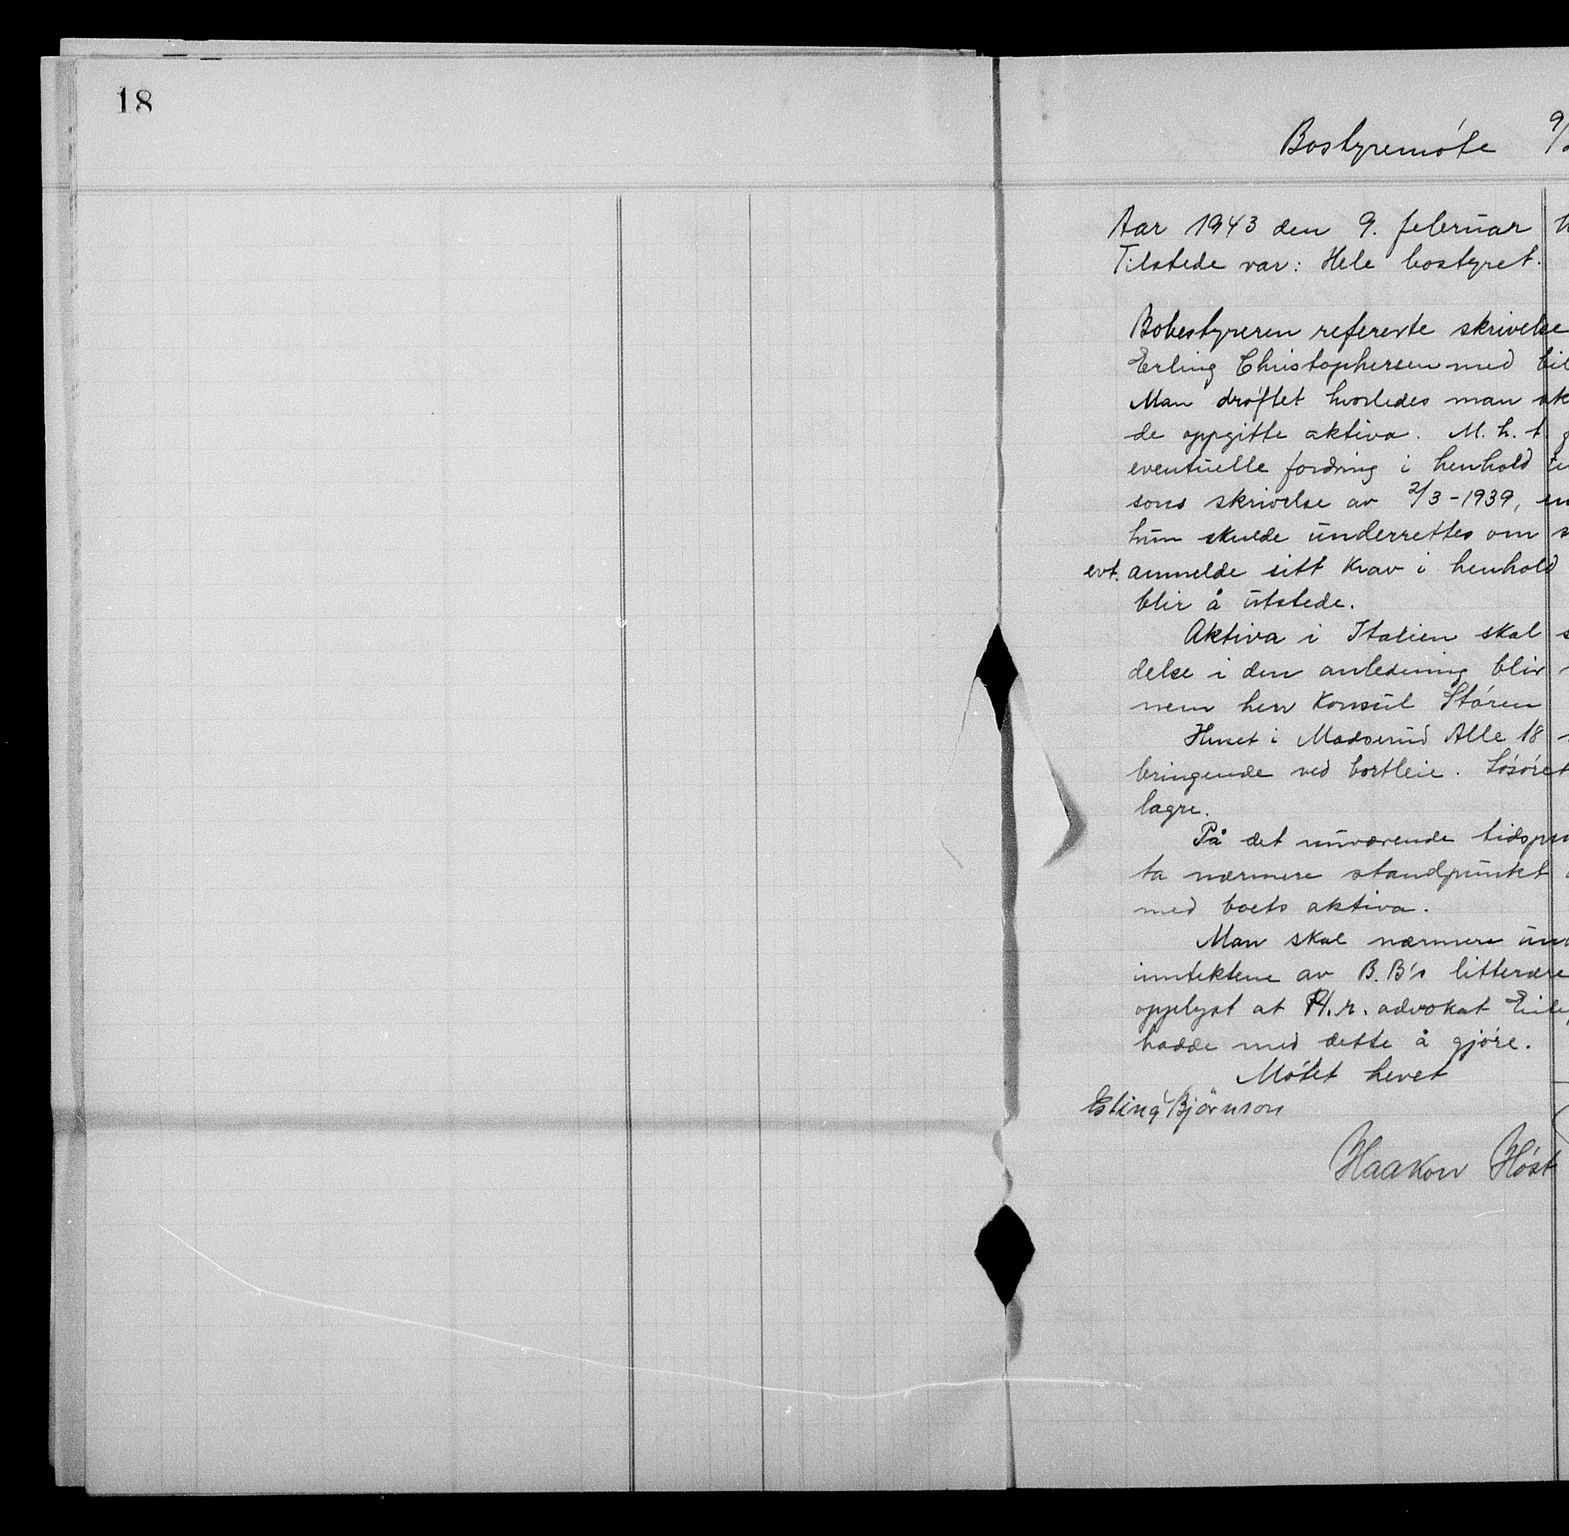 18
Bostyremöte 9/
Aar 1943 den 9. februar
Tilstede var: Hele bostyret.
Bobestyreren refererte skrivelse
Erling Christophersen med
Man dröftet hvorledes man
de oppgitte aktiva. M. h. t.
eventuelle fordring i henhold
sons skrivelse av 2/3-1939,
hun skulde underrettes om
evt. anmelde sitt krav i henhold
blir å utstede.
Aktiva i Italien skal
delse i den anledning blir
nem herr Konsul Stören
Huset i Madserud Alle 18
bringende ved bortleie. Lösöret
lagre.
På det nuværende
ta nærmere standpunkt
med boets aktiva.
Man skal nærmere
inntektene av B.B's litterære
opplyst at H.r. advokat
hadde med dette å gjöre.
Mötet hevet
Björnson
Haakon Höst